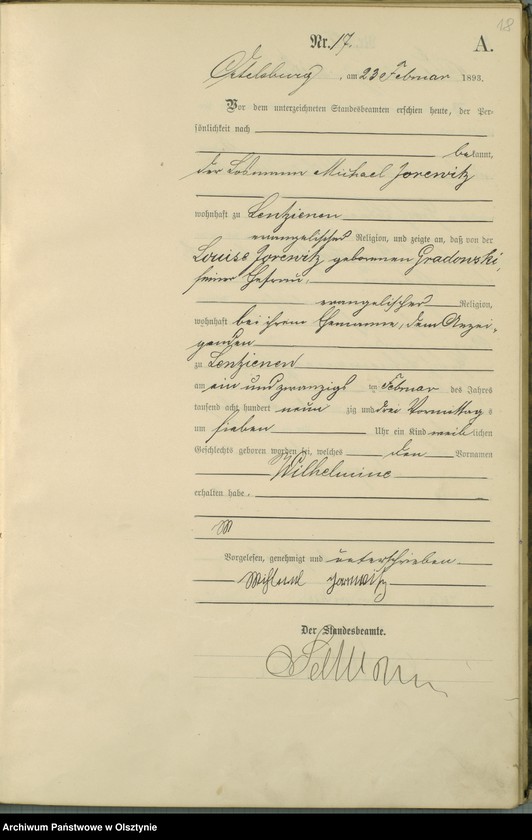 18
Nr. 17. A.
Ortelsburg, am 23 Februar 1893.
Vor dem unterzeichneten Standesbeamten erschien heute, der Per-
sönlichkeit nach
bekannt,
der Losmann Michael Jorewitz
wohnhaft zu Lentzienen
evangelischer Religion, und zeigte an, daß von der
Louise Jorewitz geborenen Gradowski,
seiner Ehefrau,
evangelischer Religion,
wohnhaft bei ihrem Ehemanne, dem Anzei-
genden
zu Lentzienen
am ein und zwanzigst en Februar des Jahres
tausend acht hundert neun zig und drei Vormittag s
um sieben Uhr ein Kind weib lichen
Geschlechts geboren worden sei, welches den Vornamen
Wilhelmine
erhalten habe.
Vorgelesen, genehmigt und unterschrieben
Der Standesbeamte.
Archiwum Państwowe w Olsztynie